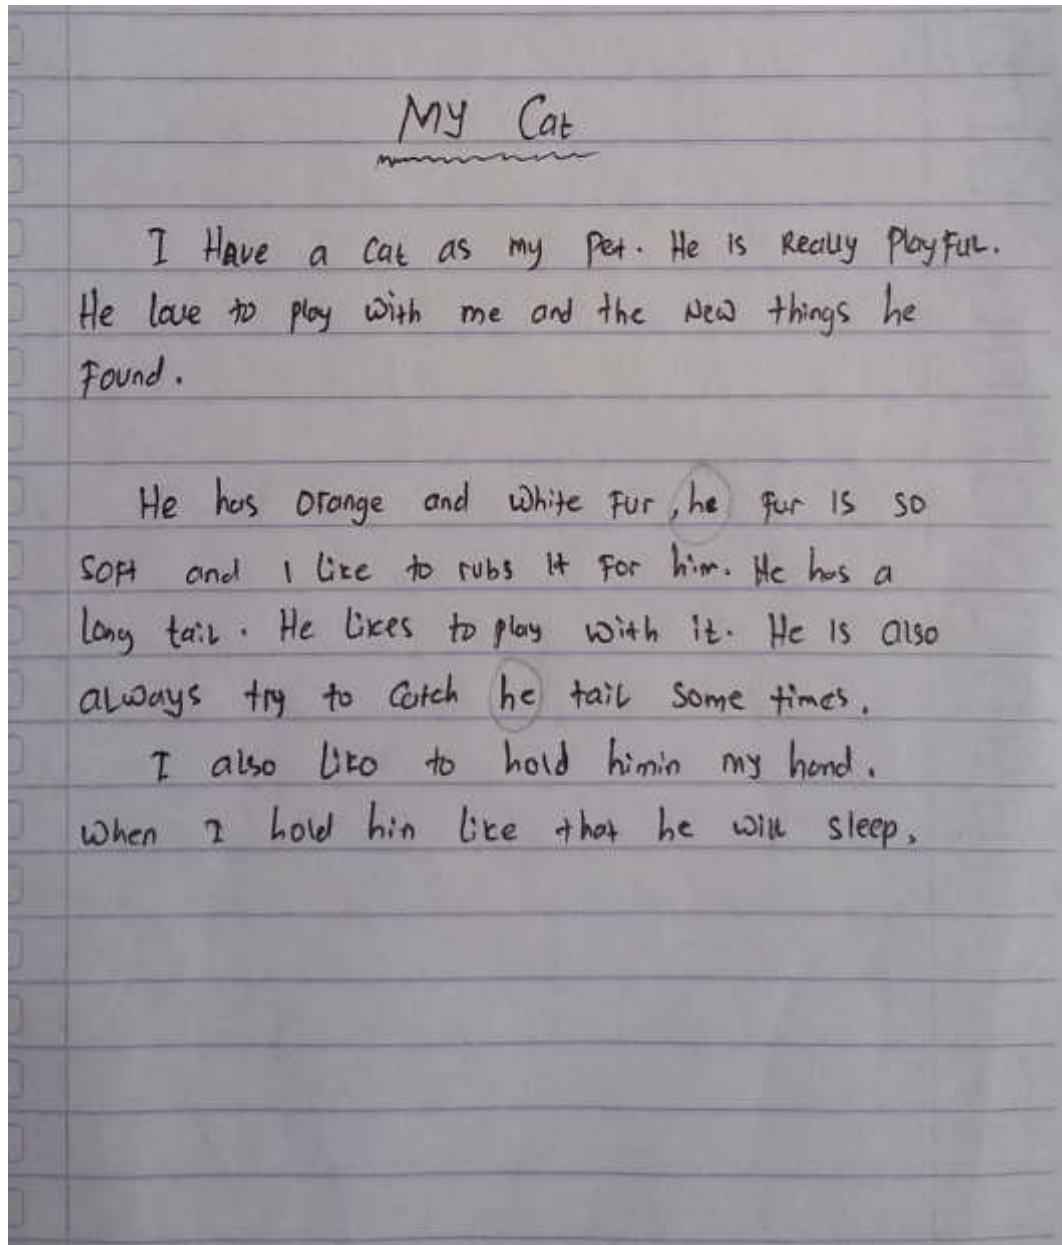 My Cat
I Have a Cat as my Pet. He is Really PlayFul.
He love to play with me and the New things he
Found.
He has orange and white Fur, he fur is so
soft and I like to rubs it For him. He has a
Long tail. He Likes to play with it. He is also
always try to Catch he tail some times.
I also Like to hold himin my hand.
When I hold hin like that he will sleep.